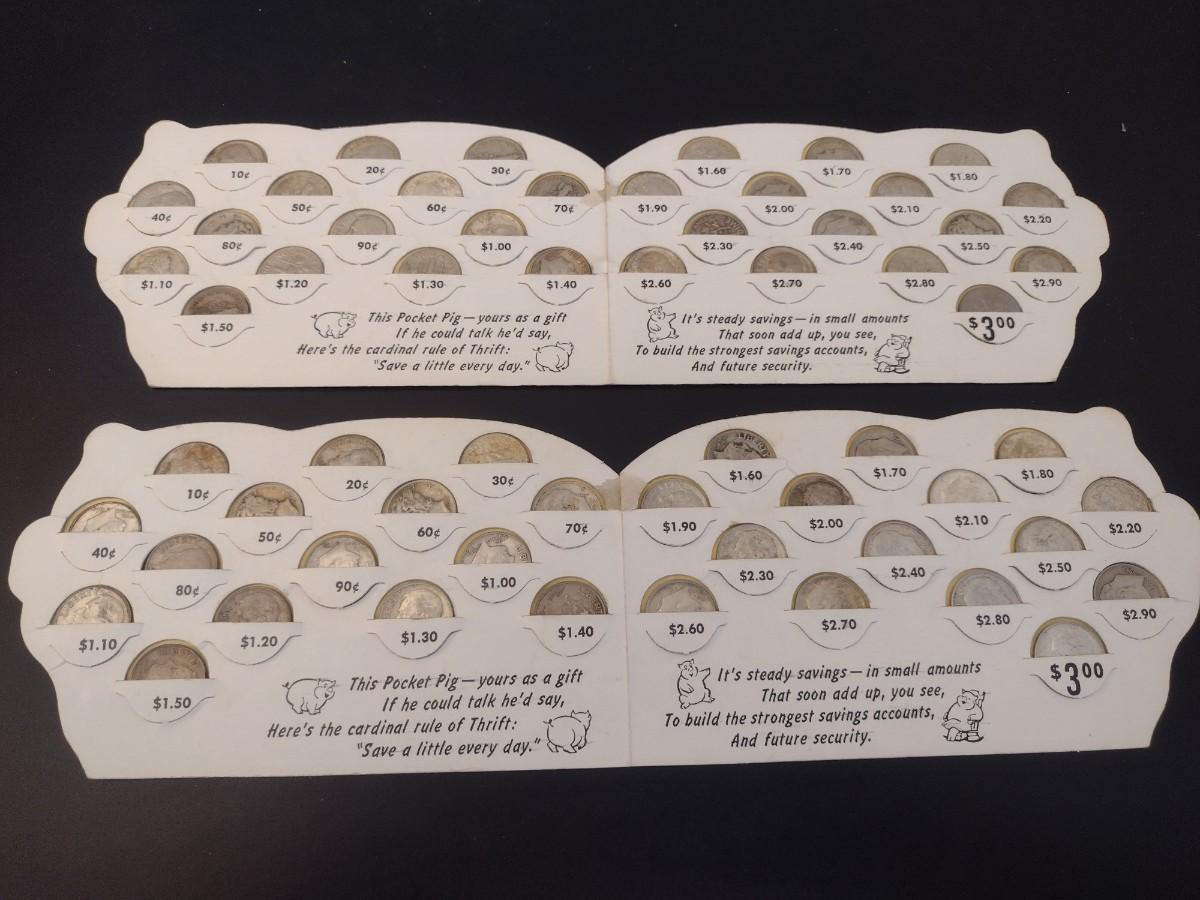 10¢ 20¢ 30¢
40¢ 50¢ 60¢ 70¢
80¢ 90¢ $1.00
$1.10 $1.20 $1.30 $1.40
$1.50
This Pocket Pig—yours as a gift
If he could talk he'd say,
Here's the cardinal rule of Thrift:
"Save a little every day."
$1.60 $1.70 $1.80
$1.90 $2.00 $2.10 $2.20
$2.30 $2.40 $2.50
$2.60 $2.70 $2.80 $2.90
$3.00
It's steady savings—in small amounts
That soon add up, you see,
To build the strongest savings accounts,
And future security.
10¢ 20¢ 30¢
40¢ 50¢ 60¢ 70¢
80¢ 90¢ $1.00
$1.10 $1.20 $1.30 $1.40
$1.50
This Pocket Pig—yours as a gift
If he could talk he'd say,
Here's the cardinal rule of Thrift:
"Save a little every day."
$1.60 $1.70 $1.80
$1.90 $2.00 $2.10 $2.20
$2.30 $2.40 $2.50
$2.60 $2.70 $2.80 $2.90
$3.00
It's steady savings—in small amounts
That soon add up, you see,
To build the strongest savings accounts,
And future security.